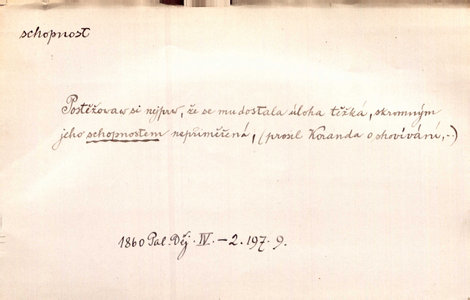 schopnost
Postěžovaw si nejprw, že se mu dostala úloha těžká, skromným
jeho schopnostem nepřiměřená, (prosil Koranda o shovívání, ..)
1860 Pal. Děj. IV. – 2. 197. 9.